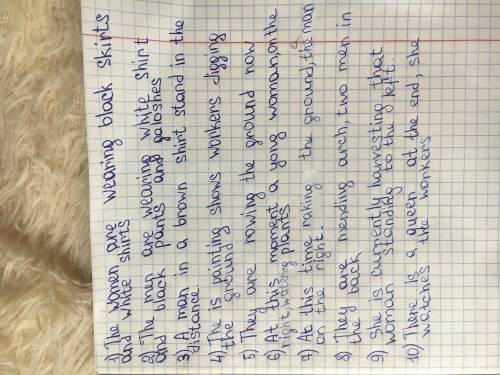 1) The women are wearing black skirts
and white shirts
2) The men are wearing white shirt
and black pants and galoshes
3) A man in a brown shirt stand in the
distance.
4) The is painting shows workers digging
the ground
5) They are rowing the ground now
6) At this moment a yong woman, on the
right, watering plants
7) At this time raking the ground, the man
on the right.
8) They are mending arch, two men in
the back
9) She is currently harvesting that
woman standing to the left.
10) There is a queen at the end, she
watches the workers